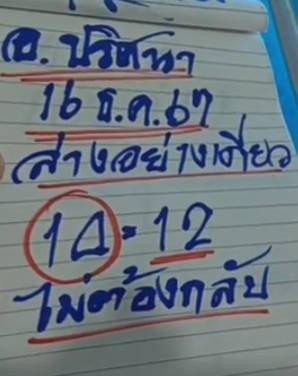 อ. ปริศนา
16 ธ.ค. 67
ล่างอย่างเดียว
14 = 12
ไม่ต้องกลับ